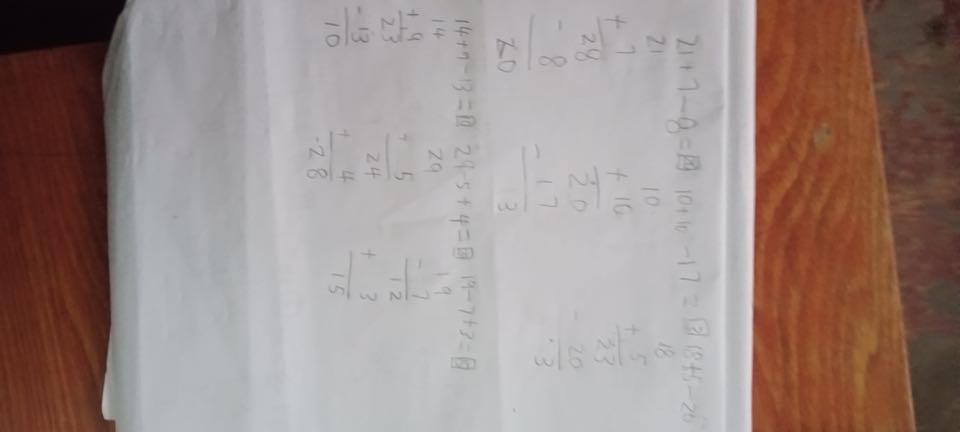 21+7-8=20 10+16-17=13 18+5-20
21 10 18
+ 7 + 16 + 5
28 20 23
- 8 - 17 - 20
20 13 3
14+9-13=10 29-5+4= 19-7+3=
14 29 19
+ 9 + 5 - 7
23 24 12
- 13 + 4 + 3
10 -28 15